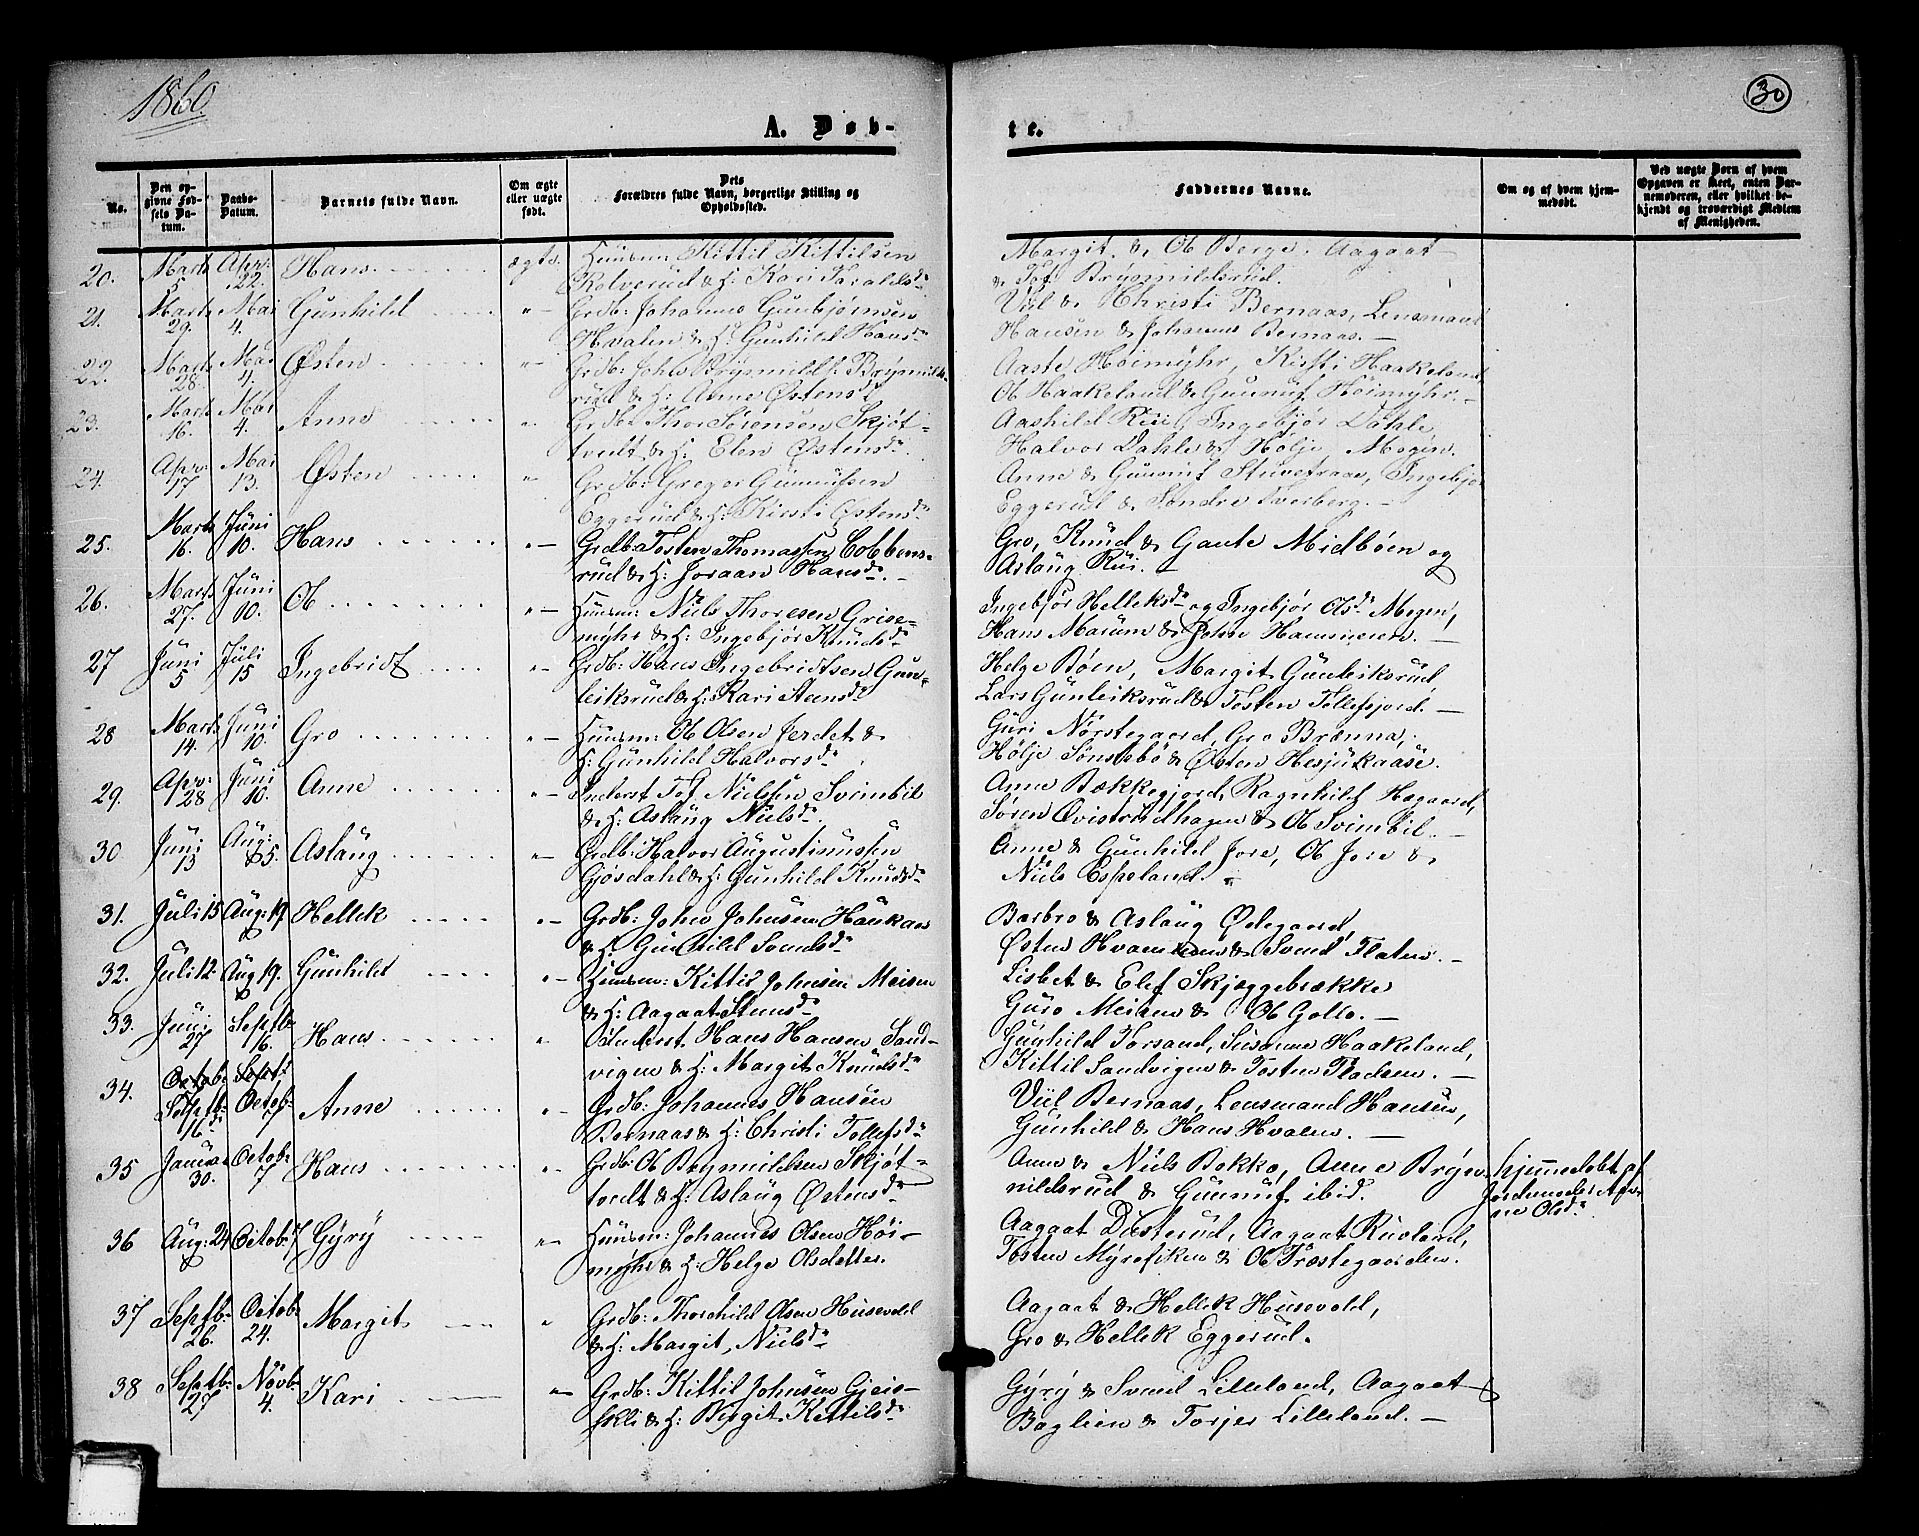 1860
30
A. Døb-
te.
No.
Den op-
givne Fød-
sels Da-
tum.
Daabs-
Datum.
Barnets fulde Navn.
Om ægte
eller uægte
født.
Dets
Forældres fulde Navn, borgerlige Stilling og
Opholdssted.
Faddernes Navne.
Om og af hvem hjem-
medøbt.
Ved uægte Børn af hvem
Opgaven er skeet, enten Bar-
nemoderen, eller hvilket be-
kjendt og troværdigt Medlem
af Menigheden.
20. Marts 5 Apr: 22. Hans ægte Huusm: Kittil Kittilsen
Rolverud & H: Kari Haraldsdr
Margit & Ol Berge, Aagaat
& Tof Brynnildsrud.
21. Marts 29. Mai 4. Gunhild "— Grdb: Johannes Gunbjørnsen
Hvalen & H: Gunhild Hansdr
Viil & Christi Bernaas, Lensmand
Hansen & Johannes Bernaas. —
22. Marts 28. Mai 4. Østen "— Grdb:
rud & H: Anne Østensdr
Aaste Høimyhr, Kirsti Haakeland
Ol Haakeland & Gunnuf Høimyhr. —
23. Marts 16. Mai 4. Anne " Grdb: Thor Sørensen Skjøt-
tvedt & H: Elen Østensdr
Aashild Rui, Ingebjør Dahle,
Halvor Dahle & Hølje Mogen.
24. Apr: 17 Mai 13. Østen "— Grdb: Gregor Gunnufsen
Eggerud & H: Kirsti Østensdr
Anne & Gunnuf Stuvetraae, Ingebjør
Eggerud & Søndre —
25. Marts 16. Juni 10. Hans "— Grdb: Tosten Thomassen Cobbens-
rud & H: Joraan Hansdr. —
Gro, Knud & Gaute Midbøen og
Aslaug Rui.
26. Marts 27. Juni 10. Ol "— Huusm: Niels Thoresen Grise-
myhr & H: Ingebjør Knudsdr
Ingebjør Helleksdr og Ingebjør Olsdr Mogen,
Hans Marum & John —
27 Juni 5 Juli 15 Ingebridt "— Grdb: Hans Ingebridtsen Gun-
leiksrud & H: Kari Steensdr
Helge Bøen, Margit Gunleiksrud,
Lars Gunleiksrud & Tosten Tollefsjord. —
28 Marts 14. Juni 10. Gro "— Huusm: Ol Olsen Jerdet &
H: Gunhild Halvorsdr
Guri Nørstegaard, Gro Brænna,
Hølje Sønstebø & Østen Hesjukaase.
29. Apr: 28 Juni 10. Anne "— Inderst Tof Nielsen Svimbil
& H: Aslaug Nielsdr.
Anne Bækkegjord, Ragnhild Hægaard,
Søren & Ol Svimbil. —
30 Juni 13 Aug: 5. Aslaug "— Grdb: Halvor Augustinussen
Gjøsdahl & H: Gunhild Knudsdr
Anne & Gunhild Jore, Ol Jore &
Niels Espeland.
31. Juli 15 Aug: 19 Hellek "— Grdb: John Johnsen Haukaas
& H: Gunhild Svendsdr
Barbro & Aslaug Ødegaard,
Østen & Svend Flaten. —
32. Juli 12. Aug 19. Gunhild "— Huusm: Kittil Johnsen Meisen
& H: Aagaat Steensdr
Lisbet & Elef Skjæggebrække
Guro Meisen & Ol Gollo. —
33. Juni 27 Septb: 16. Hans " Inderst. Hans Hansen Sand-
vigen & H: Margit Knudsdr
Gunhild Forsand, Susanne Haakeland,
Kittil Sandvigen & Tosten —
34. Octob: Septb: 16d. Sept: Octob: 7 Anne "— Grdb: Johannes Hansen
Bernaas & H: Christi Tollefsdr
Viil Bernaas, Lensmand Hansen,
Gunhild & Hans Hvalen. —
35 Januar 30. Octob: 7 Hans "— Grdb: Ol Brynnildsen Skjøt-
tvedt & H: Aslaug Østensdr
Anne & Niels Bekko, Anne Bryn-
nildsrud & Gunnuf ibid.
Hjemmedøbt af
Jordemoder An-
ne Olsdr
36 Aug: 24 Octob: 7 Gyry "— Huusm: Johannes Olsen Høi-
myhr & H: Helge Olsdatter.
Aagaat Dæsterud, Aagaat Rusland,
Tosten Myrefiken & Ol Træstegaarden.
37 Septb: 26. Octob: 24. Margit " Grdb: Thorchild Olsen Husevold
& H: Margit Nielsdr
Aagaat & Hellek Husevold,
Gro & Hellek Eggerud.
38 Septb: 27 Novb: 4. Kari "— Grdb: Kittil Johnsen Gjeis-
& H: Birgit Kittilsdr
Gyry & Svend Lilleland, Aagaat
Baglien & Torjer Lilleland. —